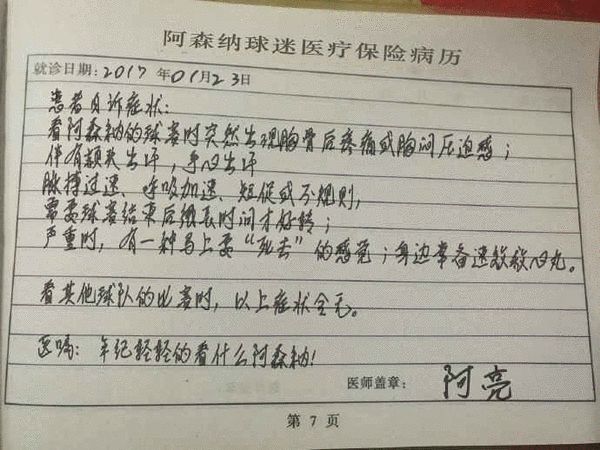 阿森纳球迷医疗保险病历
就诊日期：2017年01月23日
患者自诉症状：
看阿森纳的球赛时突然出现胸骨后疼痛或胸闷压迫感；
伴有额头出汗，手心出汗
脉搏过速、呼吸加速、短促或不规则，
需要球赛结束后很长时间才好转；
严重时，有一种马上要“死去”的感觉；身边常备速效救心丸。
看其他球队的比赛时，以上症状全无。
医嘱：年纪轻轻的看什么阿森纳！
医师盖章：阿亮
第 7 页